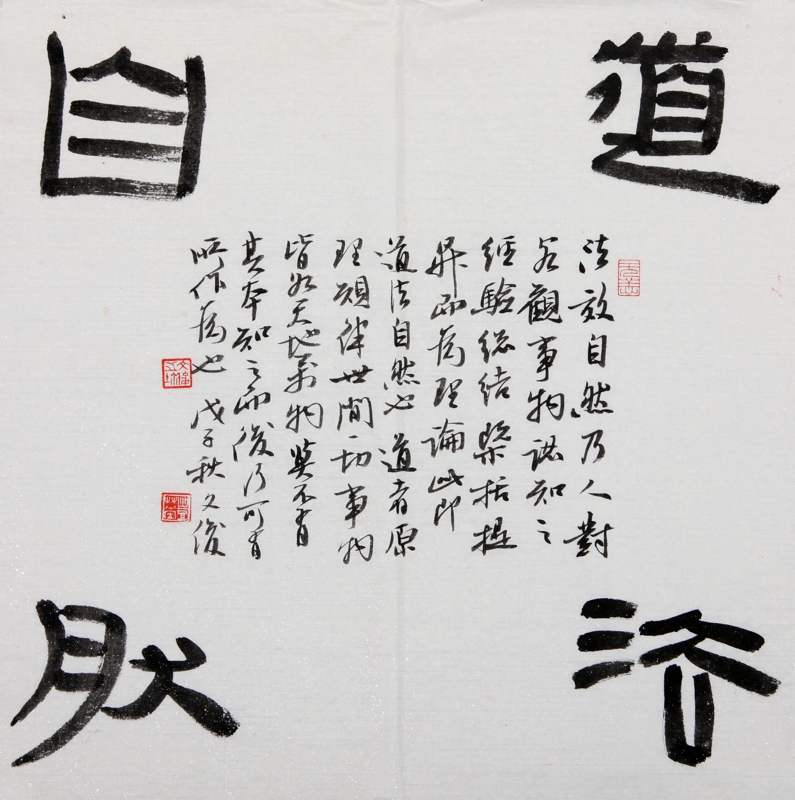 道法
自然
法效自然乃人對
客觀事物認知之
經驗總結槩括提
昇而為理論此即
道法自然也道者原
理規律世間一切事物
皆如天地萬物莫不有
其本知之而後乃可有
所作為也戊子秋文俊